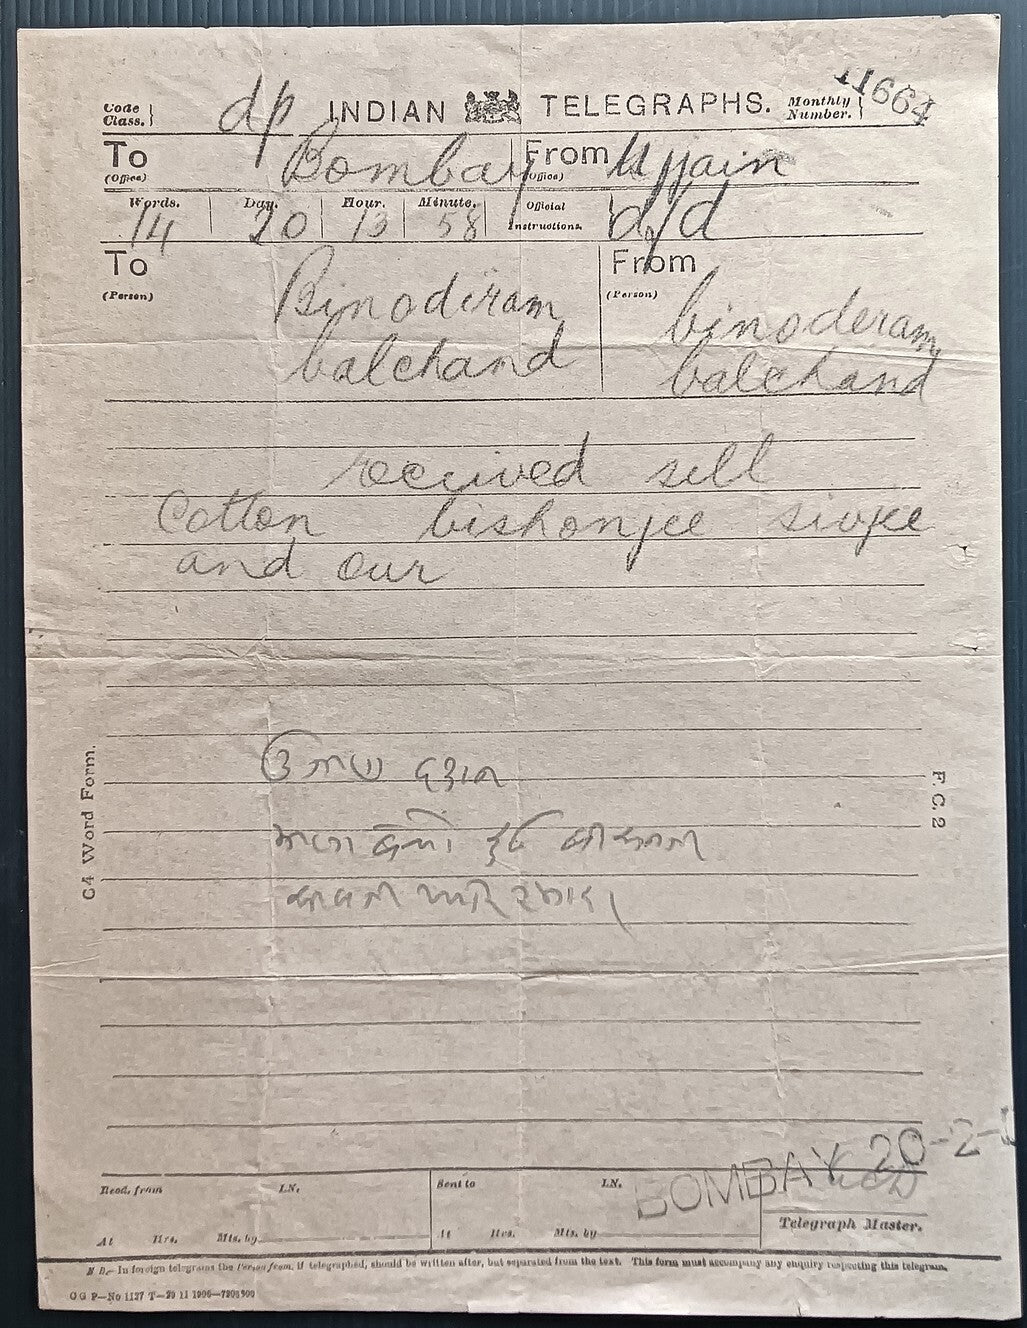 Code Class. dp INDIAN TELEGRAPHS. Monthly Number. 11664
To (Office) Bombay From (Office) Ujjain
Words. Day. Hour. Minute. Official Instructions. d/d
14 20 13 58
To (Person) From (Person)
Binodiram binoderam
balchand balchand
received sell
Cotton bishonjee sivjee
and our
C4 Word Form.
F. C. 2
BOMBAY 20-2-
Recd. from LN. Sent to LN.
At Hrs. Mts. by At Hrs. Mts. by Telegraph Master.
N B.- In foreign telegrams the Person from, if telegraphed, should be written after, but separated from the text. This form must accompany any enquiry respecting this telegram.
G G P—No 1127 T—29 11 1906—